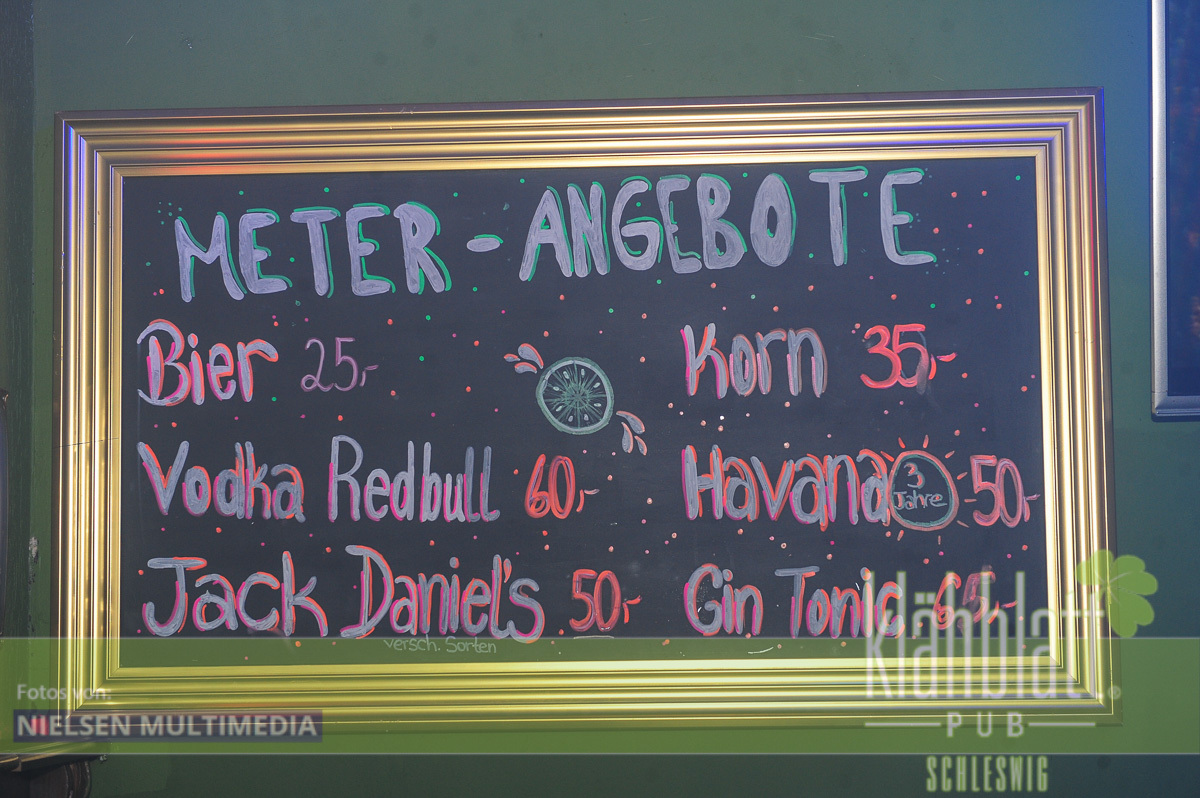 METER-ANGEBOTE
Bier 25,-
Korn 35,-
Vodka Redbull 60,-
Havana 3 Jahre 50,-
Jack Daniel's 50,-
versch. Sorten
Gin Tonic
klähblatt®
PUB
SCHLESWIG
Fotos von:
NIELSEN MULTIMEDIA